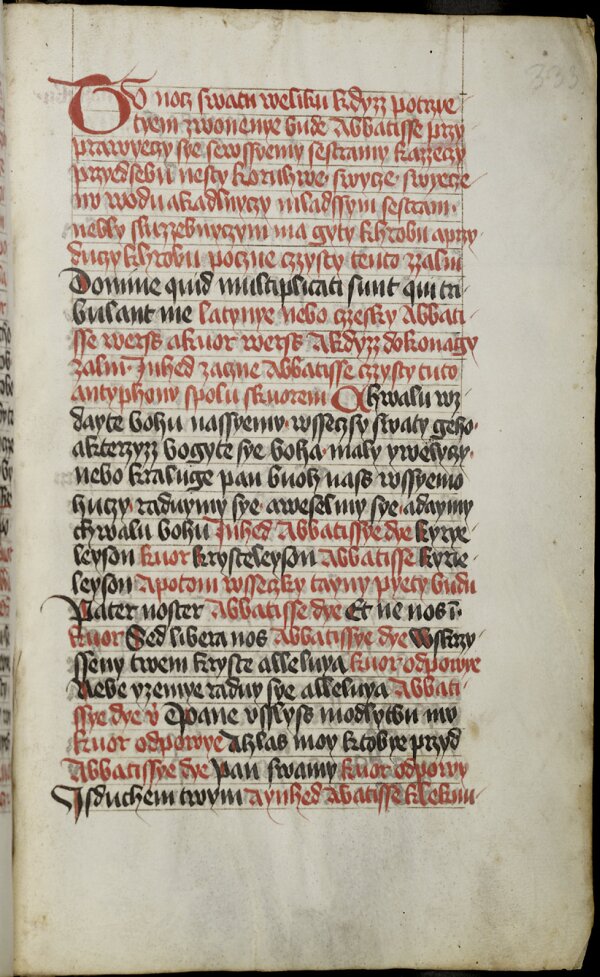 333
To nocz swatu weliku kdyz potrzye
tyem zwonenye bude Abbatisse przy
prawyeczy sye sewssyemy sestramy kazzeczy
przyed sebu nesty koruhwe swycze swyecze
nu wodu akadlnyczy mladssym sestram
nebly sluzzebnyczym ma gyty khrobu aprzy
duczy khrobu poczne czzysty tento zzalm
Domine quid multiplicati sunt qui tri
bulant me latynye nebo czesky Abbati
sse werss akuor werss Akdyzz dokonagy
zalm Inhed zaczne Abbatisse czzysty tuto
antyphony spolu skuorem Chwalu wz
dayte bohu nassyemu wsseczsy swaty geho
akterzyzz bogyte sye boha maly ywelyczy
nebo kraluge pan buoh nass wssyemo
huczy raduymy sye aweselmy sye adaymy
chwalu bohu Inhed Abbatissye dye kyrye
leyson kuor krysteleyson Abbatisse kyrie
leyson Apotom wsseczky tayny pyety budu
Pater noster Abbatisse dye Et ne nos i
kuor Sed libera nos Abbatissye dye Wskrzy
sseny twem kryste alleluya kuor odpowye
Nebe yzemye raduy sye alleluya Abbati
ssye dye v Epane vsslyss modlytbu mo
kuor odpowye Ahlas moy ktobye przyd
Abbatissye dye pan swamy kuor odpowy
Isduchem twym Aynhed Abatisse kleknu